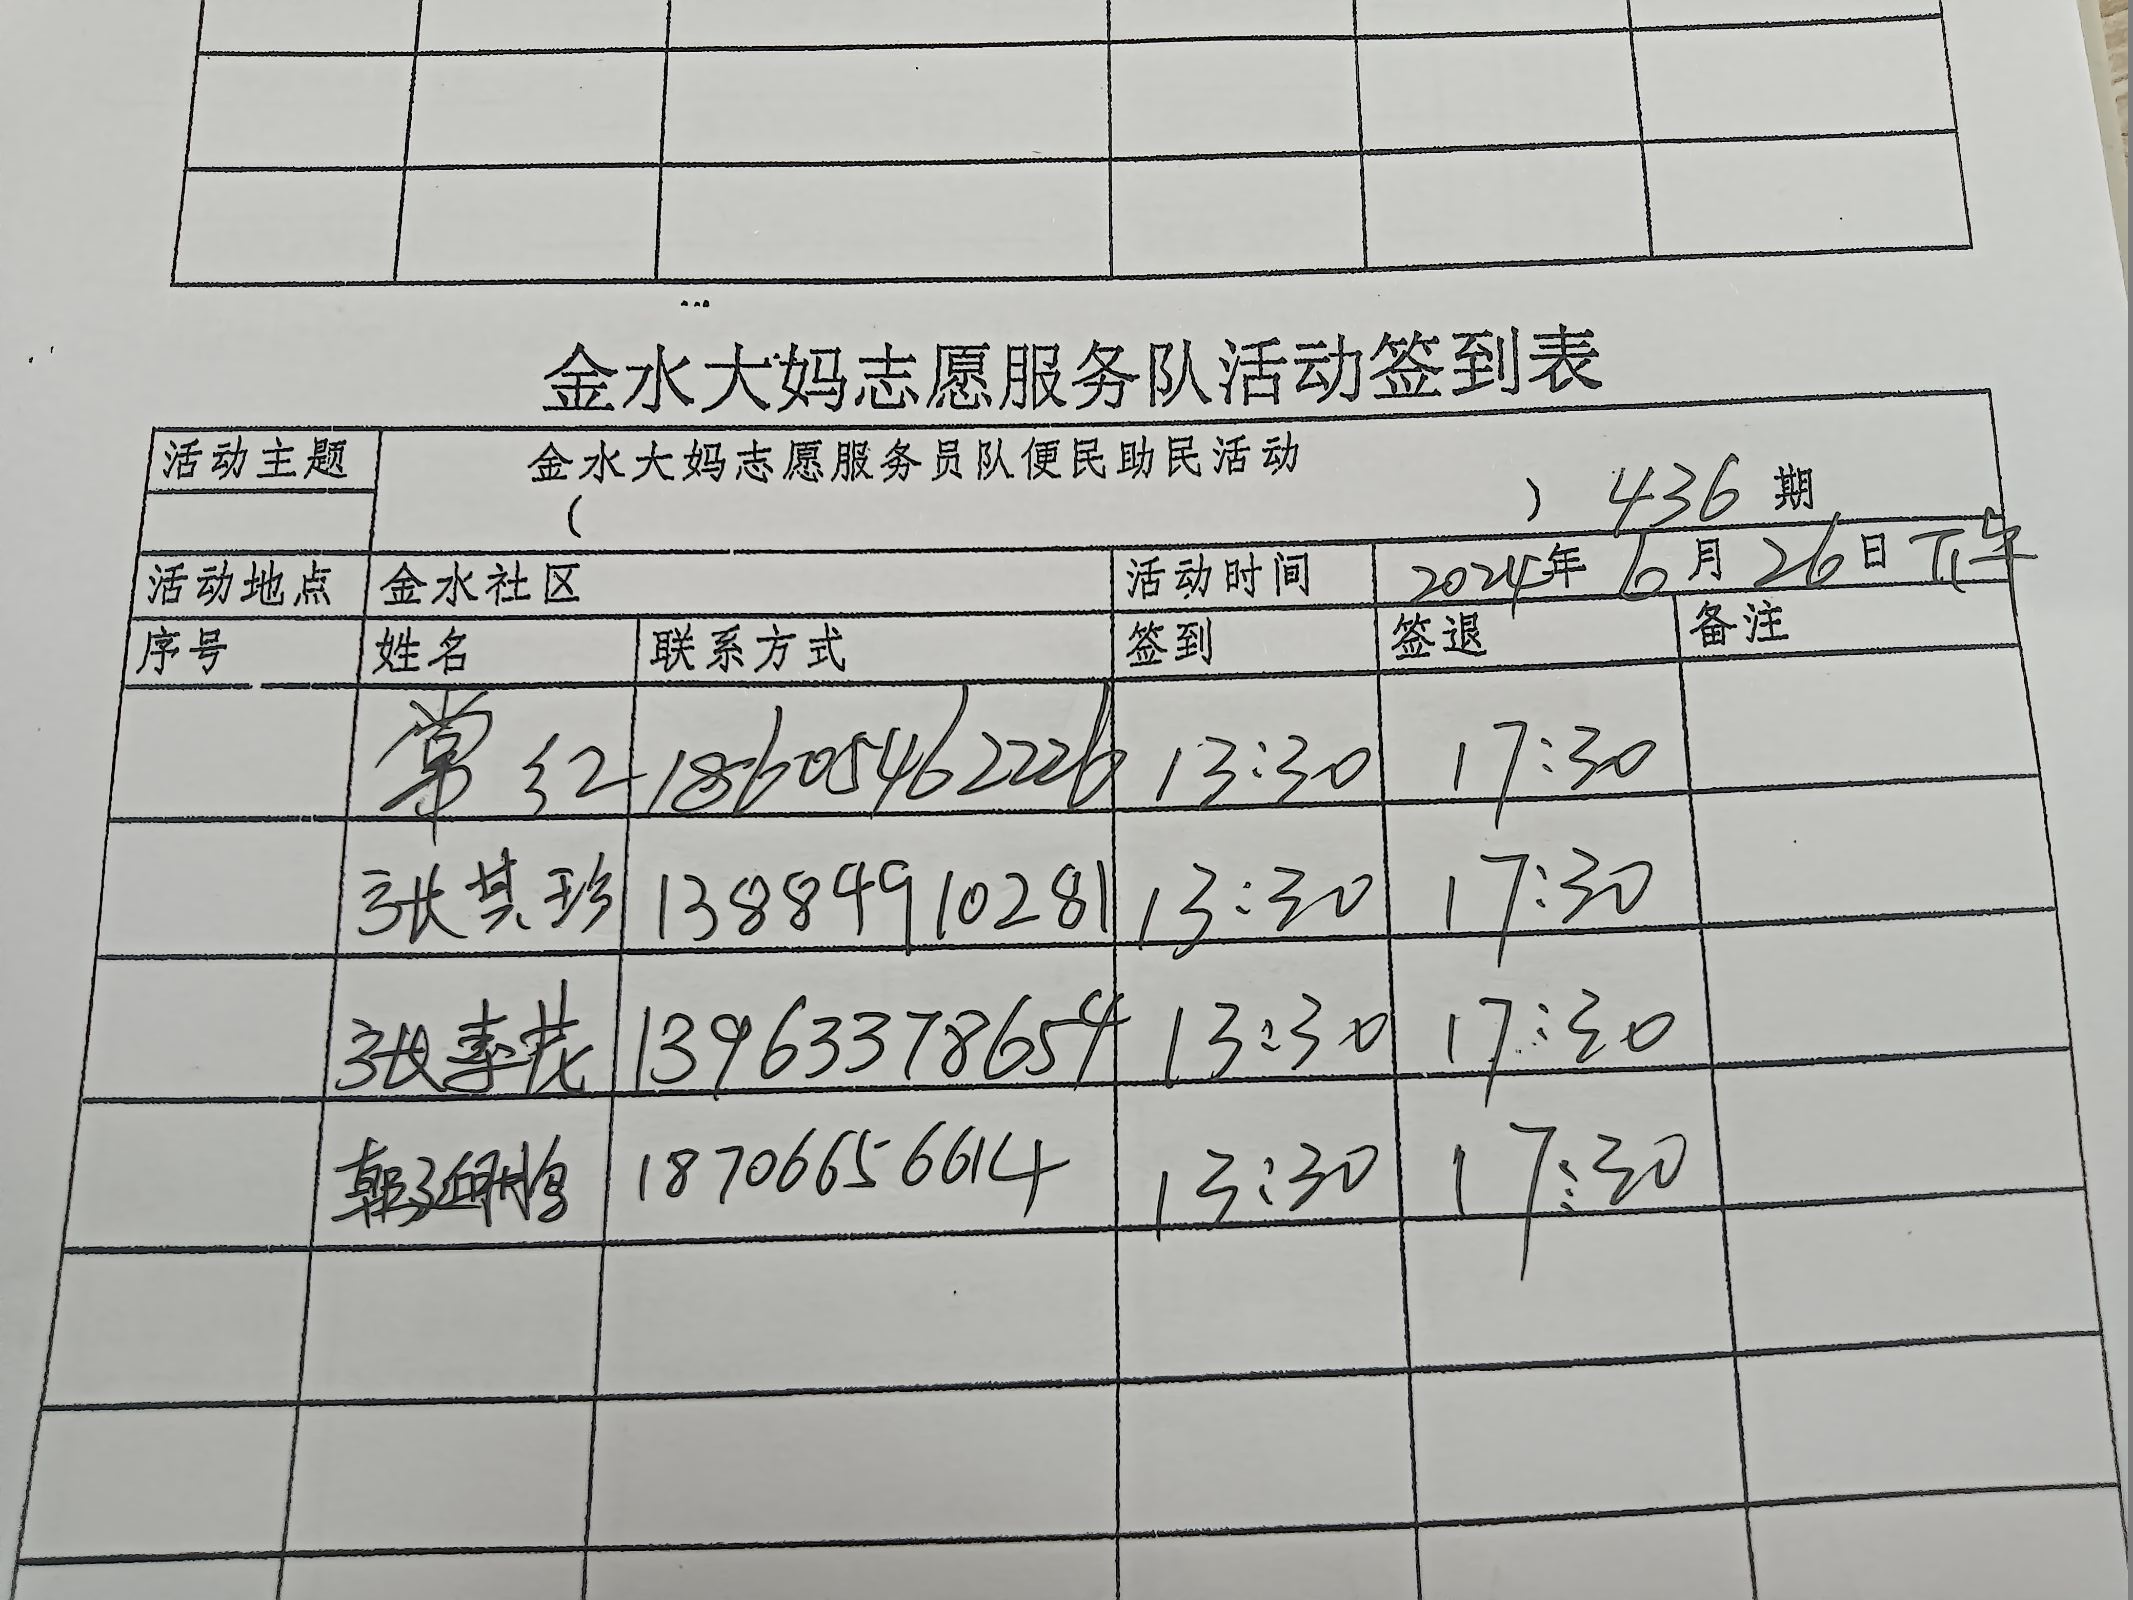 金水大妈志愿服务队活动签到表
活动主题 金水大妈志愿服务员队便民助民活动
( ) 436 期
活动地点 金水社区 活动时间 2024年 6月 26日 下午
序号 姓名 联系方式 签到 签退 备注
常红 18605462226 13:30 17:30
张其珍 13884910281 13:30 17:30
张季茂 13963378654 13:30 17:30
18706656614 13:30 17:30